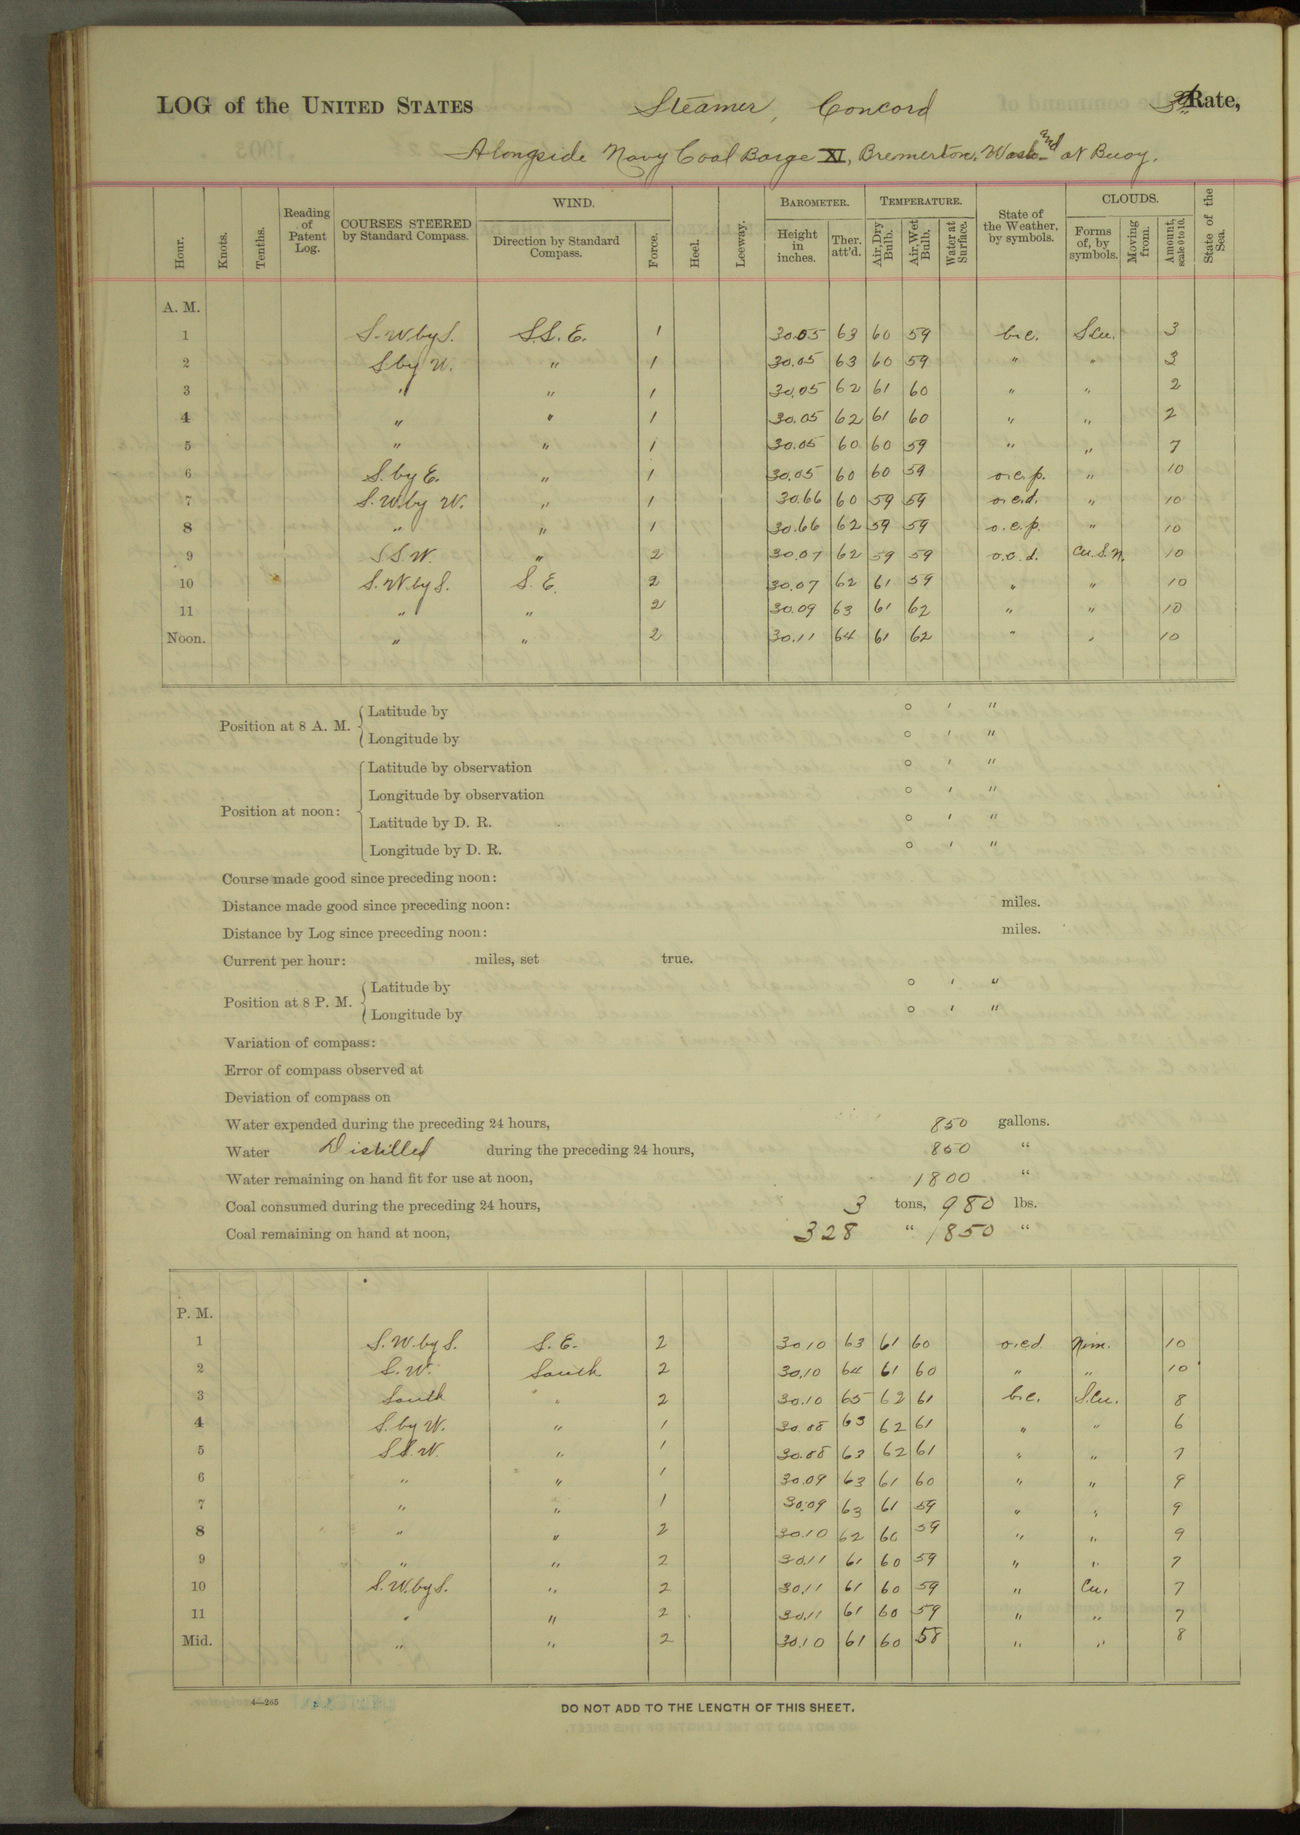 LOG of the UNITED STATES Steamer, Concord 3rd Rate,
Alongside Navy Coal Barge XI, Bremerton, Wash. and at Buoy.
Hour. Knots. Tenths. Reading of Patent Log. COURSES STEERED by Standard Compass. WIND. Direction by Standard Compass. Force. Heel. Leeway. BAROMETER. Height in inches. Ther. att'd. TEMPERATURE. Air, Dry Bulb. Air, Wet Bulb. Water at Surface. State of the Weather, by symbols. CLOUDS. Forms of, by symbols. Moving from. Amount, scale 0 to 10. State of the Sea.
A. M.
1 S.W. by S. S.S.E. 1 30.05 63 60 59 b.c. S.cu. 3
2 S by W. " 1 30.05 63 60 59 " " 3
3 " " 1 30.05 62 61 60 " " 2
4 " " 1 30.05 62 61 60 " " 2
5 " " 1 30.05 60 60 59 " " 7
6 S. by E. " 1 30.05 60 60 59 o.c.p. " 10
7 S.W. by W. " 1 30.66 60 59 59 o.c.d. " 10
8 " " 1 30.66 62 59 59 o.c.p. " 10
9 S S W. " 2 30.07 62 59 59 o.c.d. Cu.S.N. 10
10 S.W. by S. S.E. 2 30.07 62 61 59 " " 10
11 " " 2 30.09 63 61 62 " " 10
Noon. " " 2 30.11 64 61 62 " " 10
Position at 8 A. M. { Latitude by ° ′ ″
Longitude by ° ′ ″
Position at noon: { Latitude by observation ° ′ ″
Longitude by observation ° ′ ″
Latitude by D. R. ° ′ ″
Longitude by D. R. ° ′ ″
Course made good since preceding noon:
Distance made good since preceding noon: miles.
Distance by Log since preceding noon: miles.
Current per hour: miles, set true.
Position at 8 P. M. { Latitude by ° ′ ″
Longitude by ° ′ ″
Variation of compass:
Error of compass observed at
Deviation of compass on
Water expended during the preceding 24 hours, 850 gallons.
Water Distilled during the preceding 24 hours, 850 "
Water remaining on hand fit for use at noon, 1800 "
Coal consumed during the preceding 24 hours, 3 tons, 980 lbs.
Coal remaining on hand at noon, 328 " 1850 "
P. M.
1 S.W. by S. S.E. 2 30 10 63 61 60 o.c.d Nim. 10
2 S.W. South 2 30.10 64 61 60 " " 10
3 South " 2 30.10 65 62 61 b.c. S.cu. 8
4 S. by W. " 1 30.08 63 62 61 " " 6
5 S S.W. " 1 30.08 63 62 61 " " 7
6 " " 1 30.09 63 61 60 " " 9
7 " " 1 30.09 63 61 59 " " 9
8 " " 2 30.10 62 60 59 " " 9
9 " " 2 30.11 61 60 59 " " 7
10 S.W. by S. " 2 30.11 61 60 59 " Cu. 7
11 " " 2 30.11 61 60 59 " " 7
Mid. " " 2 30.10 61 60 58 " " 8
4—265
DO NOT ADD TO THE LENGTH OF THIS SHEET.